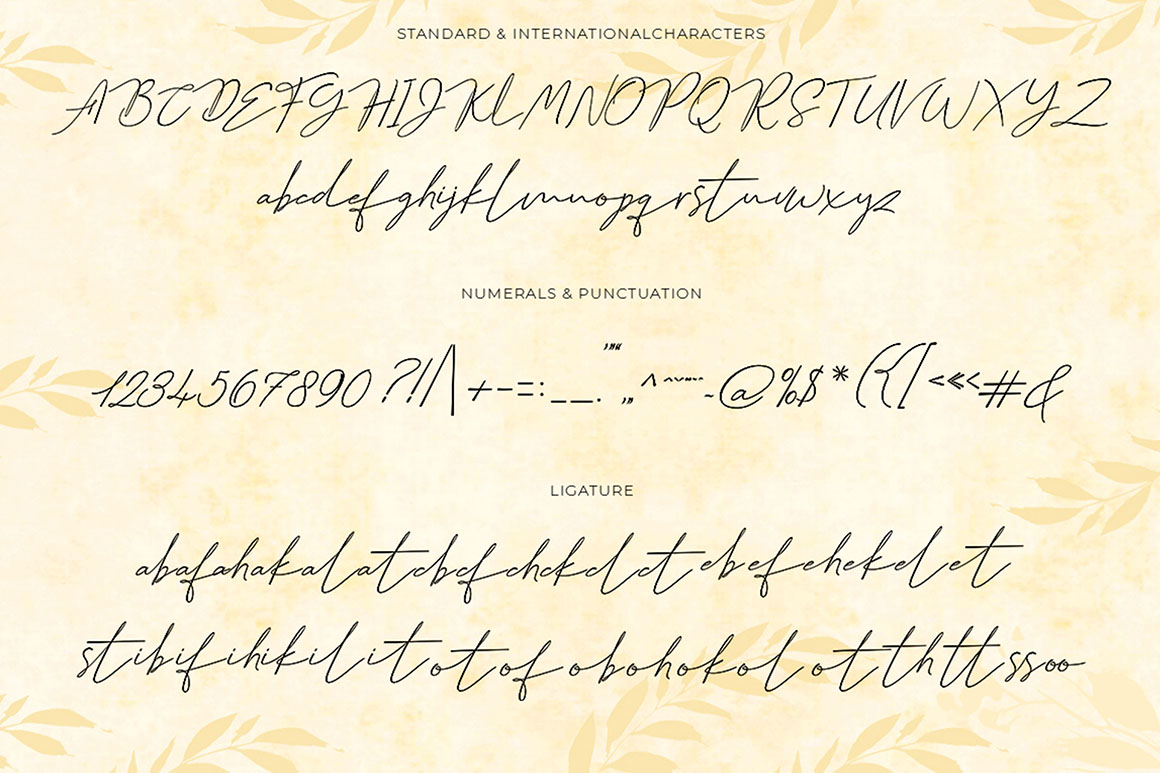 STANDARD & INTERNATIONALCHARACTERS
ABCDEFGHIJKLMNOPQRSTUVWXYZ
abcdefghijklmnopqrstuvwxyz
NUMERALS & PUNCTUATION
1234567890 ?!/\| + - = : _ _ . @ % $ * ( { [ < # &
LIGATURE
abafahakalatcbcfchckclctebefehekelet
stibifihikilitotofobohokolotthttssoo